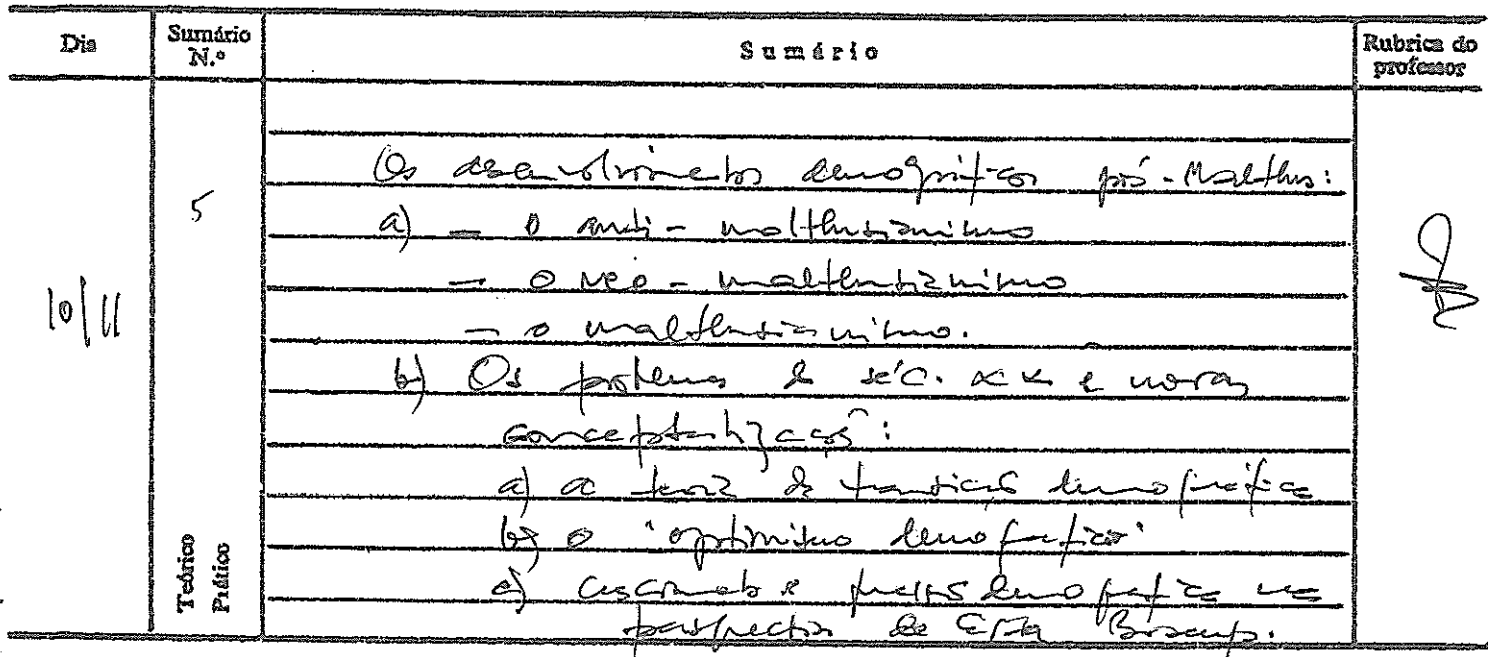 Dia
Sumário N.º
Sumário
Rubrica do professor
10/11
5
Teórico
Prático
Os desenvolvimentos demográficos pós-Malthus:
a) - o anti-malthusianismo
- o neo-malthusianismo
- o malthusianismo.
b) Os problemas do séc. XX e novas
conceptualizações:
a) a teoria da transição demográfica
b) o "optimismo demográfico"
c) crescimento e pressão demográfica na
perspectiva de Ester Boserup.